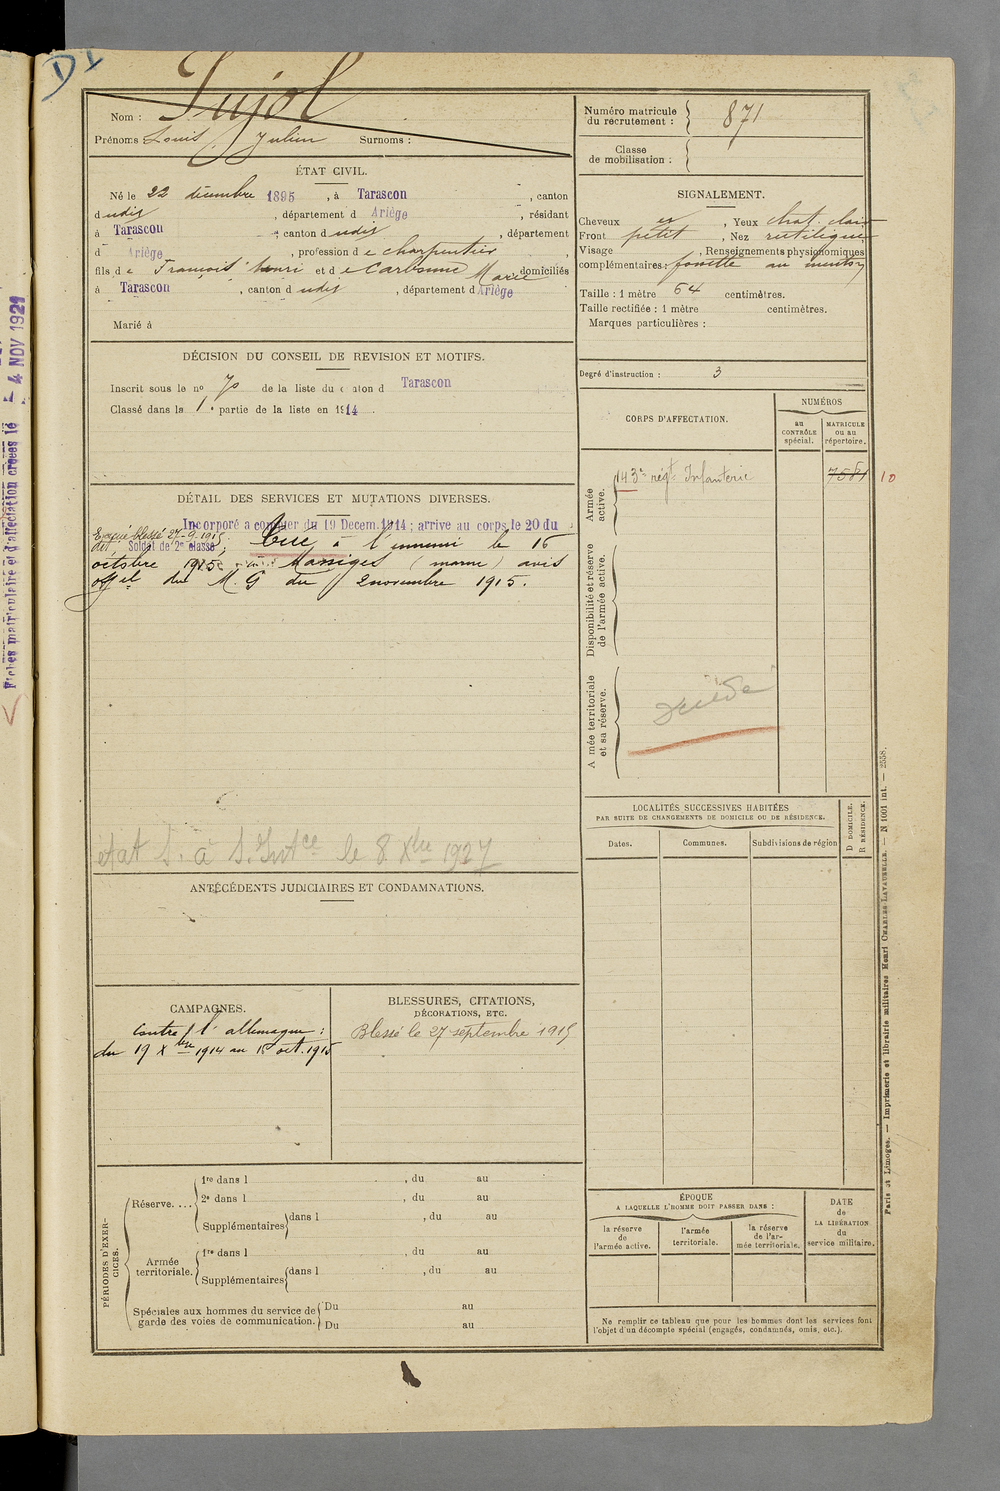 D1
Nom : Pujol
Prénoms Louis, Julien Surnoms :
Numéro matricule du recrutement : 871
Classe de mobilisation :
ÉTAT CIVIL.
Né le 22 décembre 1895, à Tarascon, canton
dudit, département d Ariège, résidant
à Tarascon, canton dudit, département
d Ariège, profession de charpentier,
fils de François henri et de Carbonne Marie domiciliés
à Tarascon, canton dudit, département d Ariège
Marié à
SIGNALEMENT.
Cheveux, Yeux chat. clair
Front petit, Nez rectiligne
Visage, Renseignements physionomiques
complémentaires : fossette au menton
Taille : 1 mètre 64 centimètres.
Taille rectifiée : 1 mètre centimètres.
Marques particulières :
Degré d'instruction : 3
DÉCISION DU CONSEIL DE REVISION ET MOTIFS.
Inscrit sous le no 70 de la liste du canton d Tarascon
Classé dans la 1e partie de la liste en 1914.
CORPS D'AFFECTATION.
NUMÉROS
au CONTRÔLE spécial.
MATRICULE ou au répertoire.
Armée active.
143e régt Infanterie
7581
10
Disponibilité et réserve de l'armée active.
Armée territoriale et sa réserve.
décédé
DÉTAIL DES SERVICES ET MUTATIONS DIVERSES.
Incorporé à compter du 19 Decem. 1914 ; arrive au corps le 20 du
Evacué blessé 27-9-1915
dit Soldat de 2e classe ; Tué à l'ennemi le 16
octobre 1915 Massiges (marne) avis
offel du M. G du 2 novembre 1915.
état S. à S. Intce le 8 Xbre 1927
Fiches matriculaire et d'affectation créées le - 4 NOV 1921
ANTÉCÉDENTS JUDICIAIRES ET CONDAMNATIONS.
LOCALITÉS SUCCESSIVES HABITÉES
PAR SUITE DE CHANGEMENTS DE DOMICILE OU DE RÉSIDENCE.
Dates.
Communes.
Subdivisions de région
D DOMICILE.
R RÉSIDENCE.
CAMPAGNES.
Contre l'allemagne :
du 19 Xbre 1914 au 16 oct. 1915
BLESSURES, CITATIONS,
DÉCORATIONS, ETC.
Blessé le 27 septembre 1915
PÉRIODES D'EXERCICES.
Réserve....
1re dans l, du au
2e dans l, du au
Supplémentaires dans l, du au
Armée territoriale.
1re dans l, du au
Supplémentaires dans l, du au
Spéciales aux hommes du service de garde des voies de communication.
Du au
Du au
ÉPOQUE
A LAQUELLE L'HOMME DOIT PASSER DANS :
la réserve de l'armée active.
l'armée territoriale.
la réserve de l'armée territoriale.
DATE de LA LIBÉRATION du service militaire.
Ne remplir ce tableau que pour les hommes dont les services font
l'objet d'un décompte spécial (engagés, condamnés, omis, etc.).
Paris et Limoges. — Imprimerie et librairie militaires Henri CHARLES-LAVAUZELLE. — N 1001 int. — 2558.